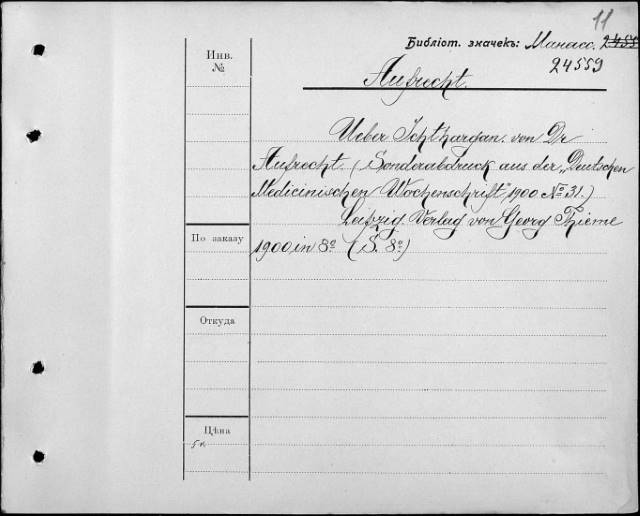 11
Библіот. значекъ: Манасс. 2455
24559
Инв.
№
Aufrecht.
Ueber Ichthargan. von Dr
Aufrecht. (Sonderabdruck aus der „Deutschen
Medicinischen Wochenschrift" 1900 № 31.)
Leipzig Verlag von Georg Thieme
По заказу
1900, in 8º (S. 8º)
Откуда
Цѣна
5к